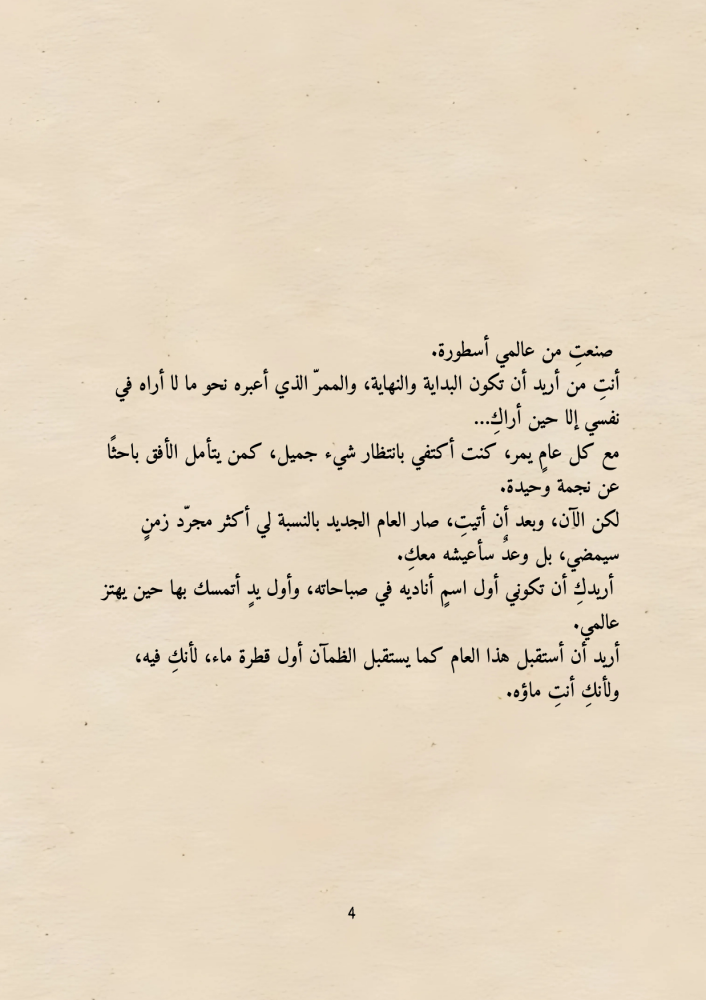 صنعتِ من عالمي أسطورة.
أنتِ من أريد أن تكون البداية والنهاية، والممرّ الذي أعبره نحو ما لا أراه في
نفسي إلا حين أراكِ...
مع كل عامٍ يمر، كنت أكتفي بانتظار شيء جميل، كمن يتأمل الأفق باحثًا
عن نجمة وحيدة.
لكن الآن، وبعد أن أتيتِ، صار العام الجديد بالنسبة لي أكثر مجرّد زمنٍ
سيمضي، بل وعدٌ سأعيشه معكِ.
أريدكِ أن تكوني أول اسمٍ أناديه في صباحاته، وأول يدٍ أتمسك بها حين يهتز
عالمي.
أريد أن أستقبل هذا العام كما يستقبل الظمآن أول قطرة ماء، لأنكِ فيه،
ولأنكِ أنتِ ماؤه.
4